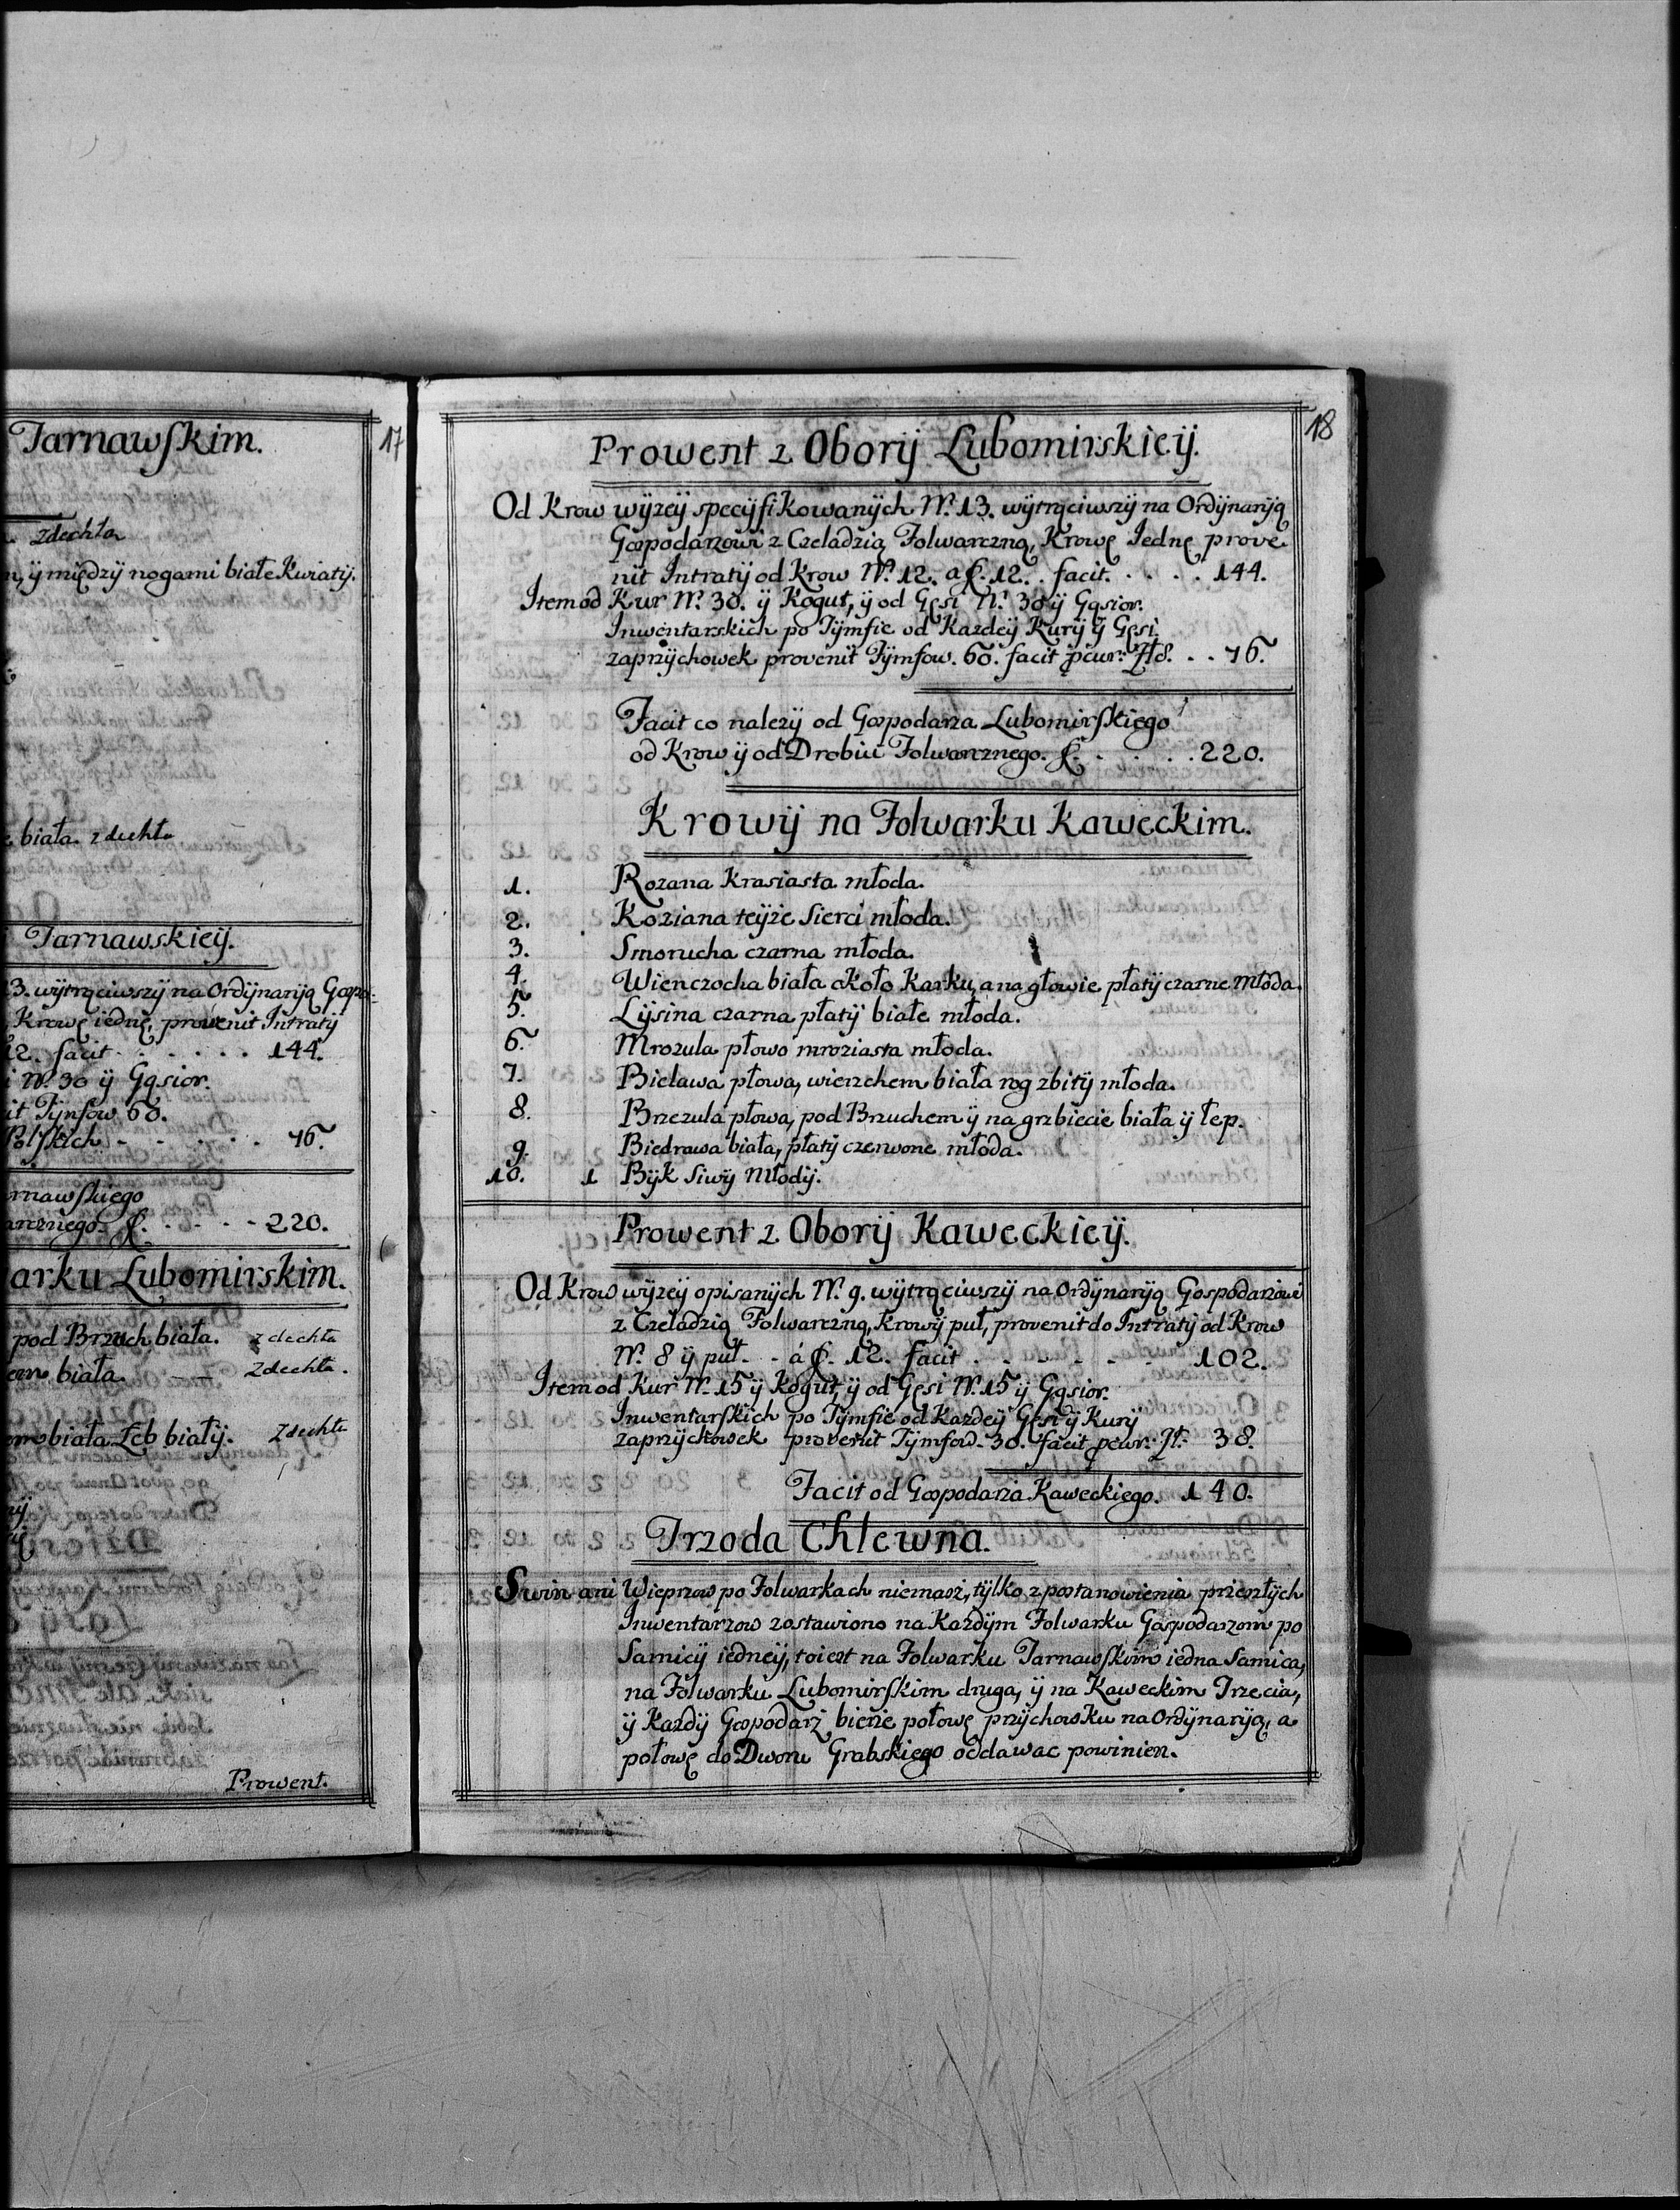 Tarnawskim.
17
zdechła
ÿ międzÿ nogami białe Kwiatÿ.
biała. zdechła
Tarnawskieÿ.
3. wÿtrąciwszÿ na Ordÿnarÿą Gospo-
Krowę iednę, provenit Intratÿ
12. facit . . . . . . 144.
Nº 30 ÿ Gąsior.
Tÿnfow 60.
Polskich - - . . . . 76.
arnawskiego
- - 220.
arku Lubomirskim.
pod Brzuch biała. zdechła
biała. — zdechła.
biała Łeb białÿ. zdechła
Prowent.
18
Prowent z Oborÿ Lubomirskieÿ.
Od Krow wÿzeÿ specÿfikowanÿch Nº 13. wÿtrąciwszÿ na Ordÿnarÿą
Gospodarzowi z Czeladzią Folwarczną, Krowę Iednę prove-
nit Intratÿ od Krow Nº 12. a f. 12. . facit. . . . . 144.
Item od Kur Nº 30. ÿ Kogut, ÿ od Gęsi Nº 30 ÿ Gąsior.
Inwentarskich po Tÿmfie od Kazdeÿ Kurÿ ÿ Gęsi
zaprzÿchowek provenit Tÿmfow. 60. facit pcur: Zł8. . . 76.
Facit co nalezÿ od Gospodarza Lubomirskiego
od Krow ÿ od Drobiu Folwarcznego. f. . . . . 220.
Krowÿ na Folwarku Kaweckim.
1. Rozana Krasiasta młoda.
2. Koziana teÿże Sierci młoda.
3. Smorucha czarna młoda.
4. Wienczocha biała około Karku, a na głowie płatÿ czarne Młoda.
5. Lÿsina czarna płatÿ białe młoda.
6. Mrozula płowo mroziasta młoda.
7. Bielawa płowa, wierzchem biała rog zbitÿ młoda.
8. Brzezula płowa, pod Brzuchem ÿ na grzbiecie biała ÿ łep.
9. Biedrawa biała, płatÿ czerwone młoda.
10. 1 Bÿk Siwÿ Młodÿ.
Prowent z Oborÿ Kaweckieÿ.
Od Krow wÿzeÿ opisanÿch Nº 9. wÿtrąciwszÿ na Ordÿnarÿą Gospodarzowi
z Czeladzią Folwarczną, Krowÿ puł, provenit do Intratÿ od Krow
Nº 8 ÿ puł. - á f. 12. facit . - . - - . - 102.
Item od Kur Nº 15 ÿ Kogut, ÿ od Gęsi Nº 15 ÿ Gąsior.
Inwentarskich po Tÿmfie od Kazdeÿ Gęsi ÿ Kurÿ
zaprzÿchowek provenit Tÿmfow. 30. facit pcur: Zł. 38.
Facit od Gospodarza Kaweckiego. 140.
Trzoda Chlewna.
Swin ani Wieprzow po Folwarkach niemasz, tÿlko z postanowienia przeszłÿch
Inwentarzow zostawiono na Kazdÿm Folwarku Gospodarzom po
Samicÿ iedneÿ, to iest na Folwarku Tarnawskim iedna Samica,
na Folwarku Lubomirskim druga, ÿ na Kaweckim Trzecia,
ÿ Kazdÿ Gospodarz bierze połowę przÿchowku na Ordÿnarÿą, a
połowę do Dworu Grabskiego oddawac powinien.